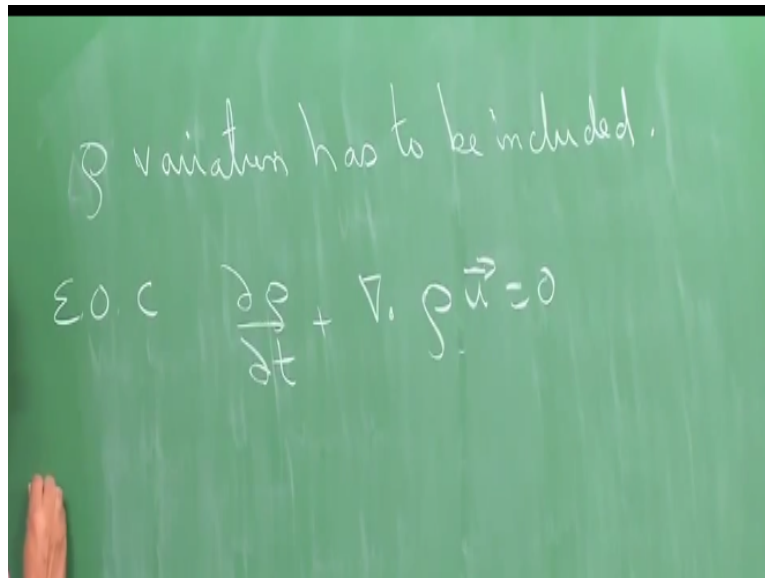 ρ variation has to be included.
E.O.C ∂ρ/∂t + ∇. ρu⃗ = 0